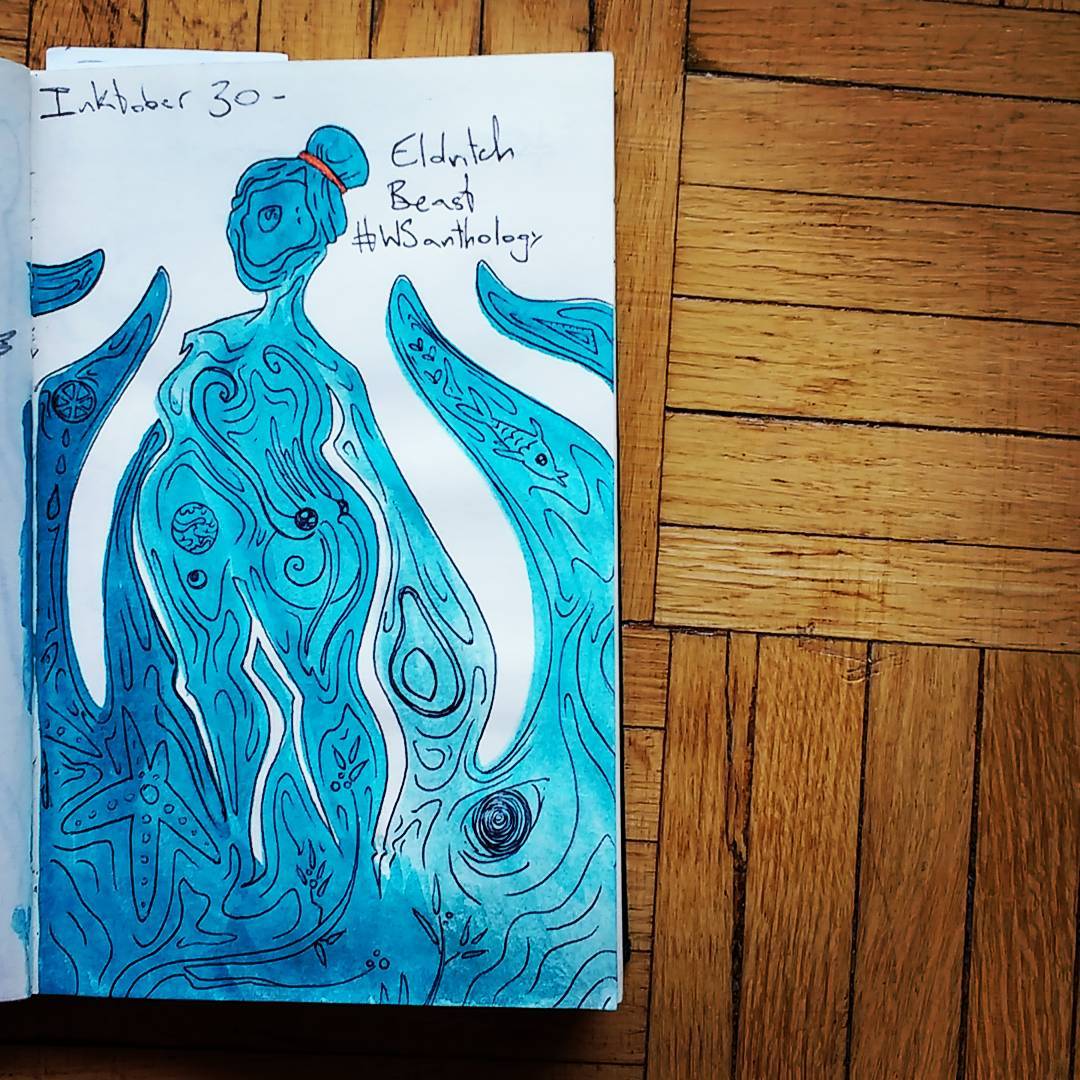 Inktober 30 -
Eldritch
Beast
#WSanthology